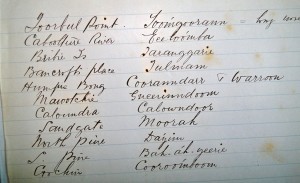 Toorbul Point Toomgoorann =
Caboolture River Eeeloomba
Bribie Is Taranggarie
Bancroft's place Tulmam
Humpie Bong Cooranndarr & Warroon
Maroochie Gueerinndoom
Caloundra Calowndoor
Sandgate Moorah
North Pine Dajjim
S. Pine Bah. ah. geerie
Coochin Cooroomboom